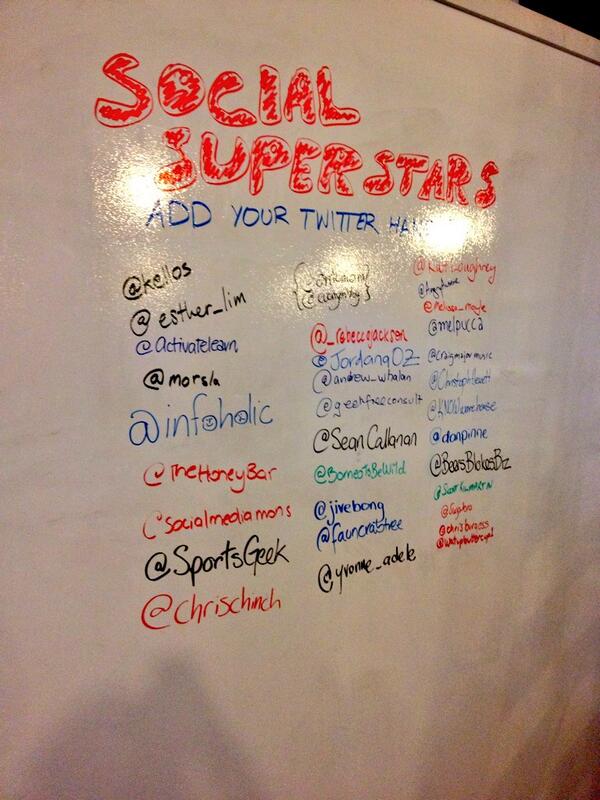 SOCIAL
SUPERSTARS
ADD YOUR TWITTER
@kellos
@esther_lim
@Activatelearn
@morsla
@infoholic
@TheHoneyBar
@Socialmediamons
@SportsGeek
@chrischinch
@_rebeccajackson
@JordanaOZ
@andrew_whalan
@greenfreeconsult
@SeanCallanan
@BorneoToBeWild
@jivebong
@fauncrabtree
@yvonne_adele
@melpucca
@craigmajormusic
@KNOWwarehouse
@danpinne
@BearsBlokesBiz
@ScottKilmartin
@chrisburgess